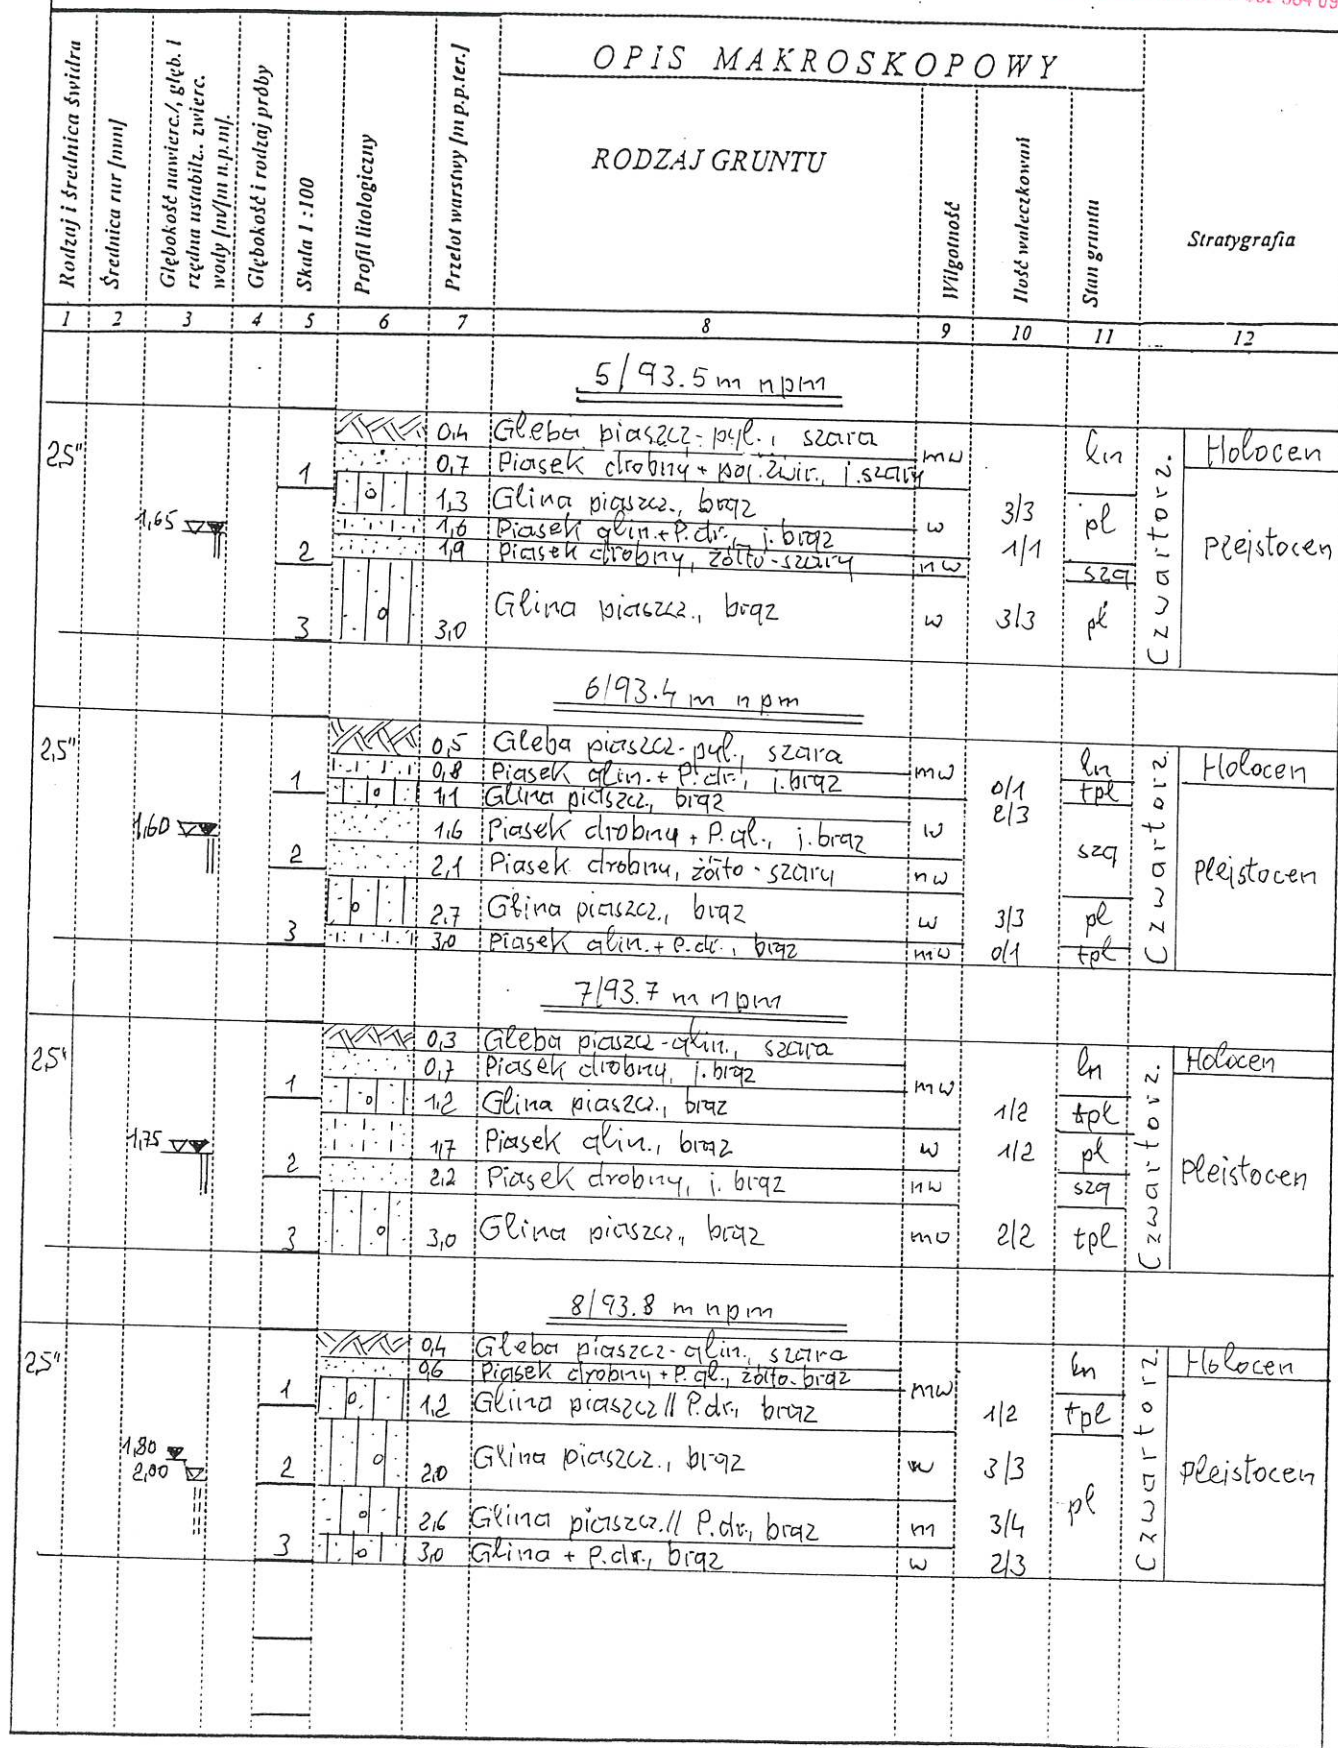 OPIS MAKROSKOPOWY
Rodzaj i średnica świdra
Średnica rur [mm]
Głębokość nawierc./, głęb. i
rzędna ustabilz.. zwierc.
wody [nv/[m n.p.m].
Głębokość i rodzaj próby
Skala 1 :100
Profil litologiczny
Przelot warstwy [m p.p.ter.]
RODZAJ GRUNTU
Wilgotność
Ilość wałeczkowań
Stan gruntu
Stratygrafia
1 2 3 4 5 6 7 8 9 10 11 12
5/93.5 m npm
2,5"
1,65
1
2
3
0,4 Gleba piaszcz-pyl., szara
0,7 Piasek drobny + poj. żwir., j. szary mw ln Holocen
1,3 Glina piaszcz., brąz 3/3
1,6 Piasek glin.+P.dr., j. brąz w 1/1 pl Plejstocen
1,9 Piasek drobny, żółto-szary nw szg
3,0 Glina piaszcz., brąz w 3/3 pl
Czwartorz.
6/93.4 m npm
2,5"
1,60
1
2
3
0,5 Gleba piaszcz-pyl., szara ln Holocen
0,8 Piasek glin.+ P.dr., j. brąz mw 0/1 tpl
1,1 Glina piaszcz, brąz 2/3
1,6 Piasek drobny + P.gl., j. brąz w szg
2,1 Piasek drobny, żółto-szary nw Plejstocen
2,7 Glina piaszcz., brąz w 3/3 pl
3,0 Piasek glin.+ P.dr., brąz mw 0/1 tpl
Czwartorz.
7/93.7 m npm
2,5"
1,75
1
2
3
0,3 Gleba piaszcz-glin., szara Holocen
0,7 Piasek drobny, j. brąz mw ln
1,2 Glina piaszcz., brąz 1/2 tpl
1,7 Piasek glin., brąz w 1/2 pl
2,2 Piasek drobny, j. brąz nw szg Plejstocen
3,0 Glina piaszcz., brąz mw 2/2 tpl
Czwartorz.
8/93.8 m npm
2,5"
1,80
2,00
1
2
3
0,4 Gleba piaszcz-glin., szara Holocen
0,6 Piasek drobny + P.gl., żółto-brąz mw ln
1,2 Glina piaszcz // P.dr., brąz 1/2 tpl
2,0 Glina piaszcz., brąz w 3/3 Plejstocen
2,6 Glina piaszcz.// P.dr., brąz m 3/4 pl
3,0 Glina + P.dr., brąz w 2/3
Czwartorz.